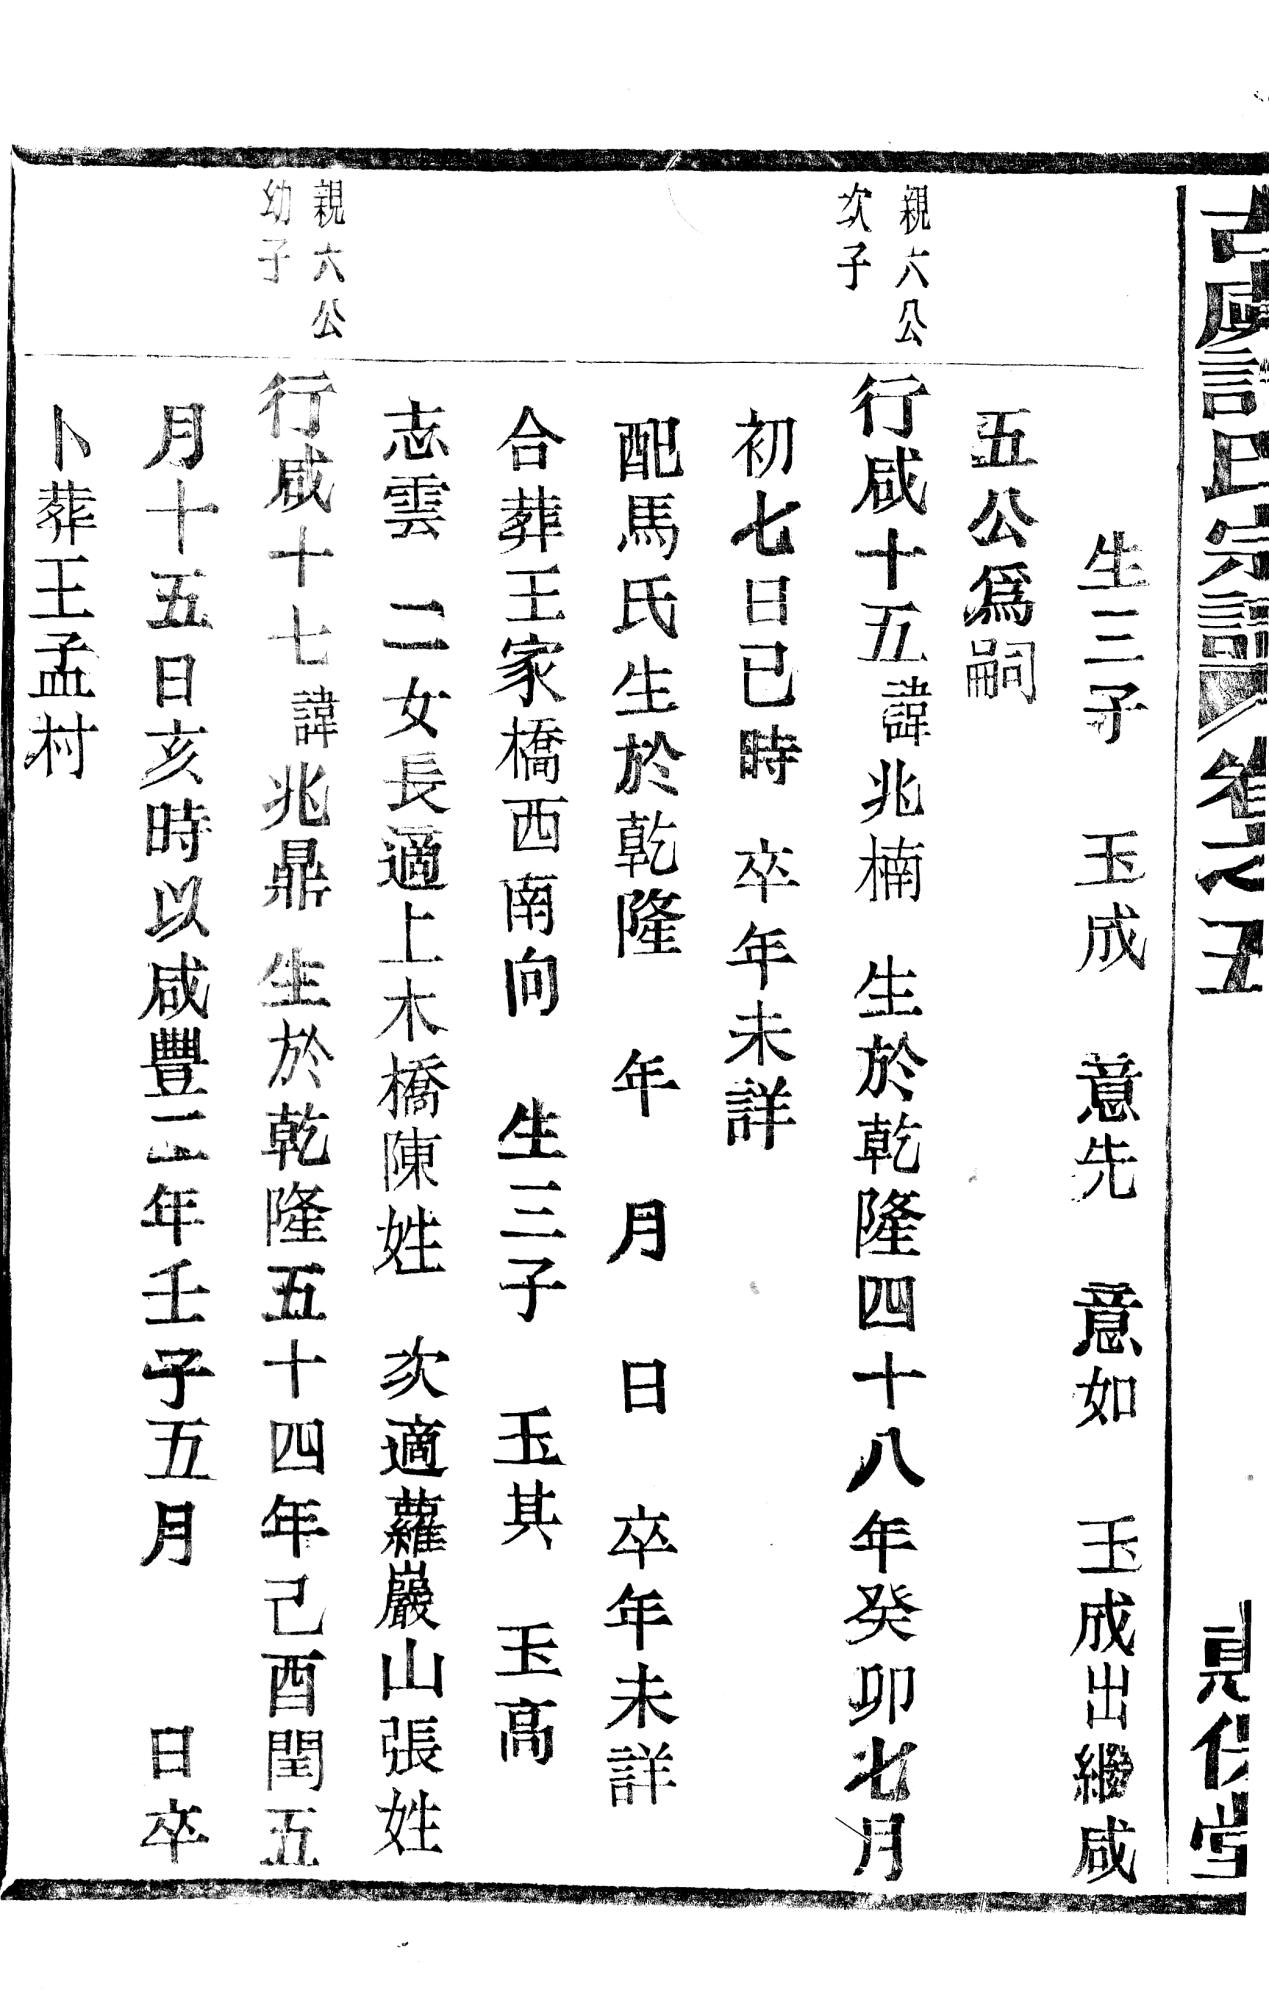 古虞許氏宗譜 卷之五 堂
生三子 玉成 意先 意如 玉成出繼咸
五公爲嗣
親六公
次子
行咸十五諱兆楠 生於乾隆四十八年癸卯七月
初七日已時 卒年未詳
配馬氏生於乾隆 年 月 日 卒年未詳
合葬王家橋西南向 生三子 玉其 玉高
志雲 二女長適上木橋陳姓 次適蘿巖山張姓
親六公
幼子
行咸十七諱兆鼎 生於乾隆五十四年己酉閏五
月十五日亥時以咸豐二年壬子五月 日卒
卜葬王孟村